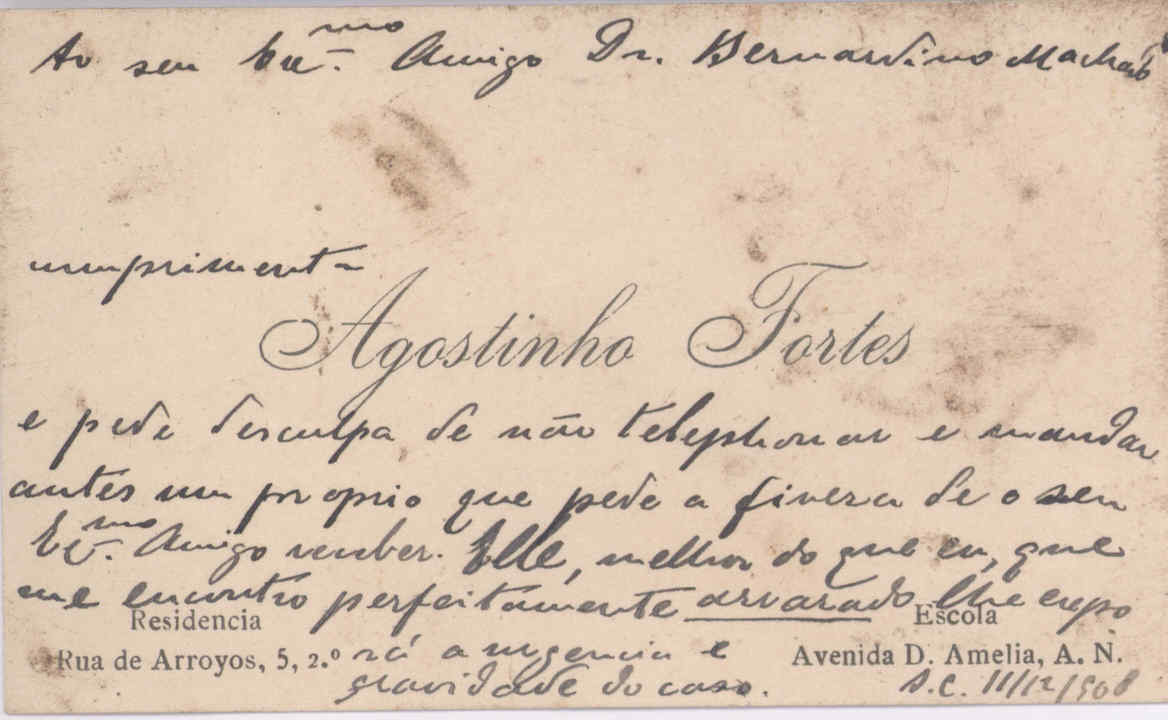 Ao seu Exmo. Amigo Dr. Bernardino Machado
cumprimenta
Agostinho Fortes
e pede desculpa de não telephonar e mandar
antes um proprio que pede a fineza de o seu
Exmo. Amigo receber. Elle, melhor do que eu, que
me encontro perfeitamente arvorado lhe expo
Residencia
Escola
Rua de Arroyos, 5, 2.º
rá a urgencia e
Avenida D. Amelia, A. N.
gravidade do caso.
S.C. 11/12/908